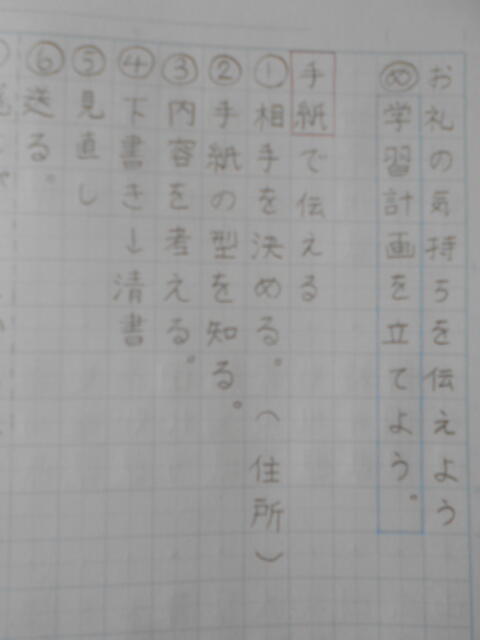 お礼の気持ちを伝えよう
め 学習計画を立てよう。
手紙で伝える
①相手を決める。(住所)
②手紙の型を知る。
③内容を考える。
④下書き→清書
⑤見直し
⑥送る。